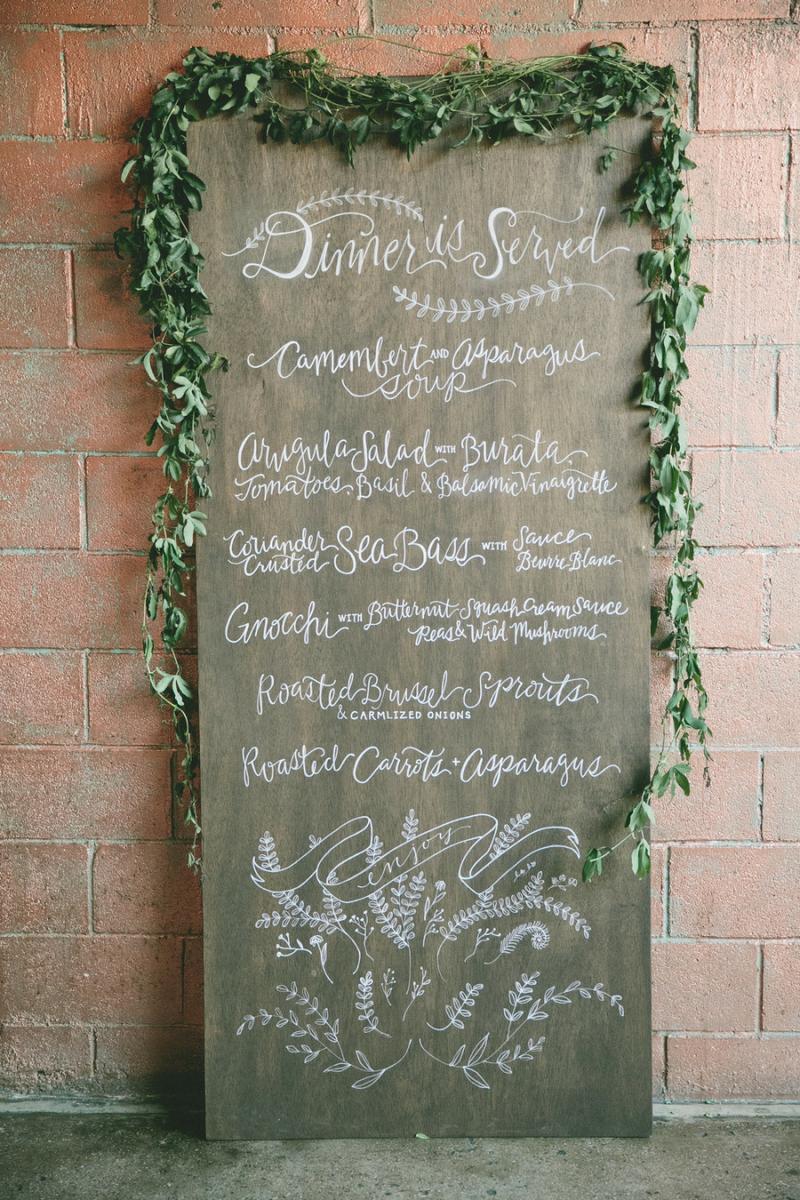 Dinner is Served
Camembert AND Asparagus
soup
Arugula Salad WITH Burata,
Tomatoes, Basil & Balsamic Vinaigrette
Coriander Crusted Sea Bass WITH Sauce Beurre Blanc
Gnocchi WITH Butternut Squash Cream Sauce
Peas & Wild Mushrooms
Roasted Brussel Sprouts
& CARMLIZED ONIONS
Roasted Carrots + Asparagus
enjoy